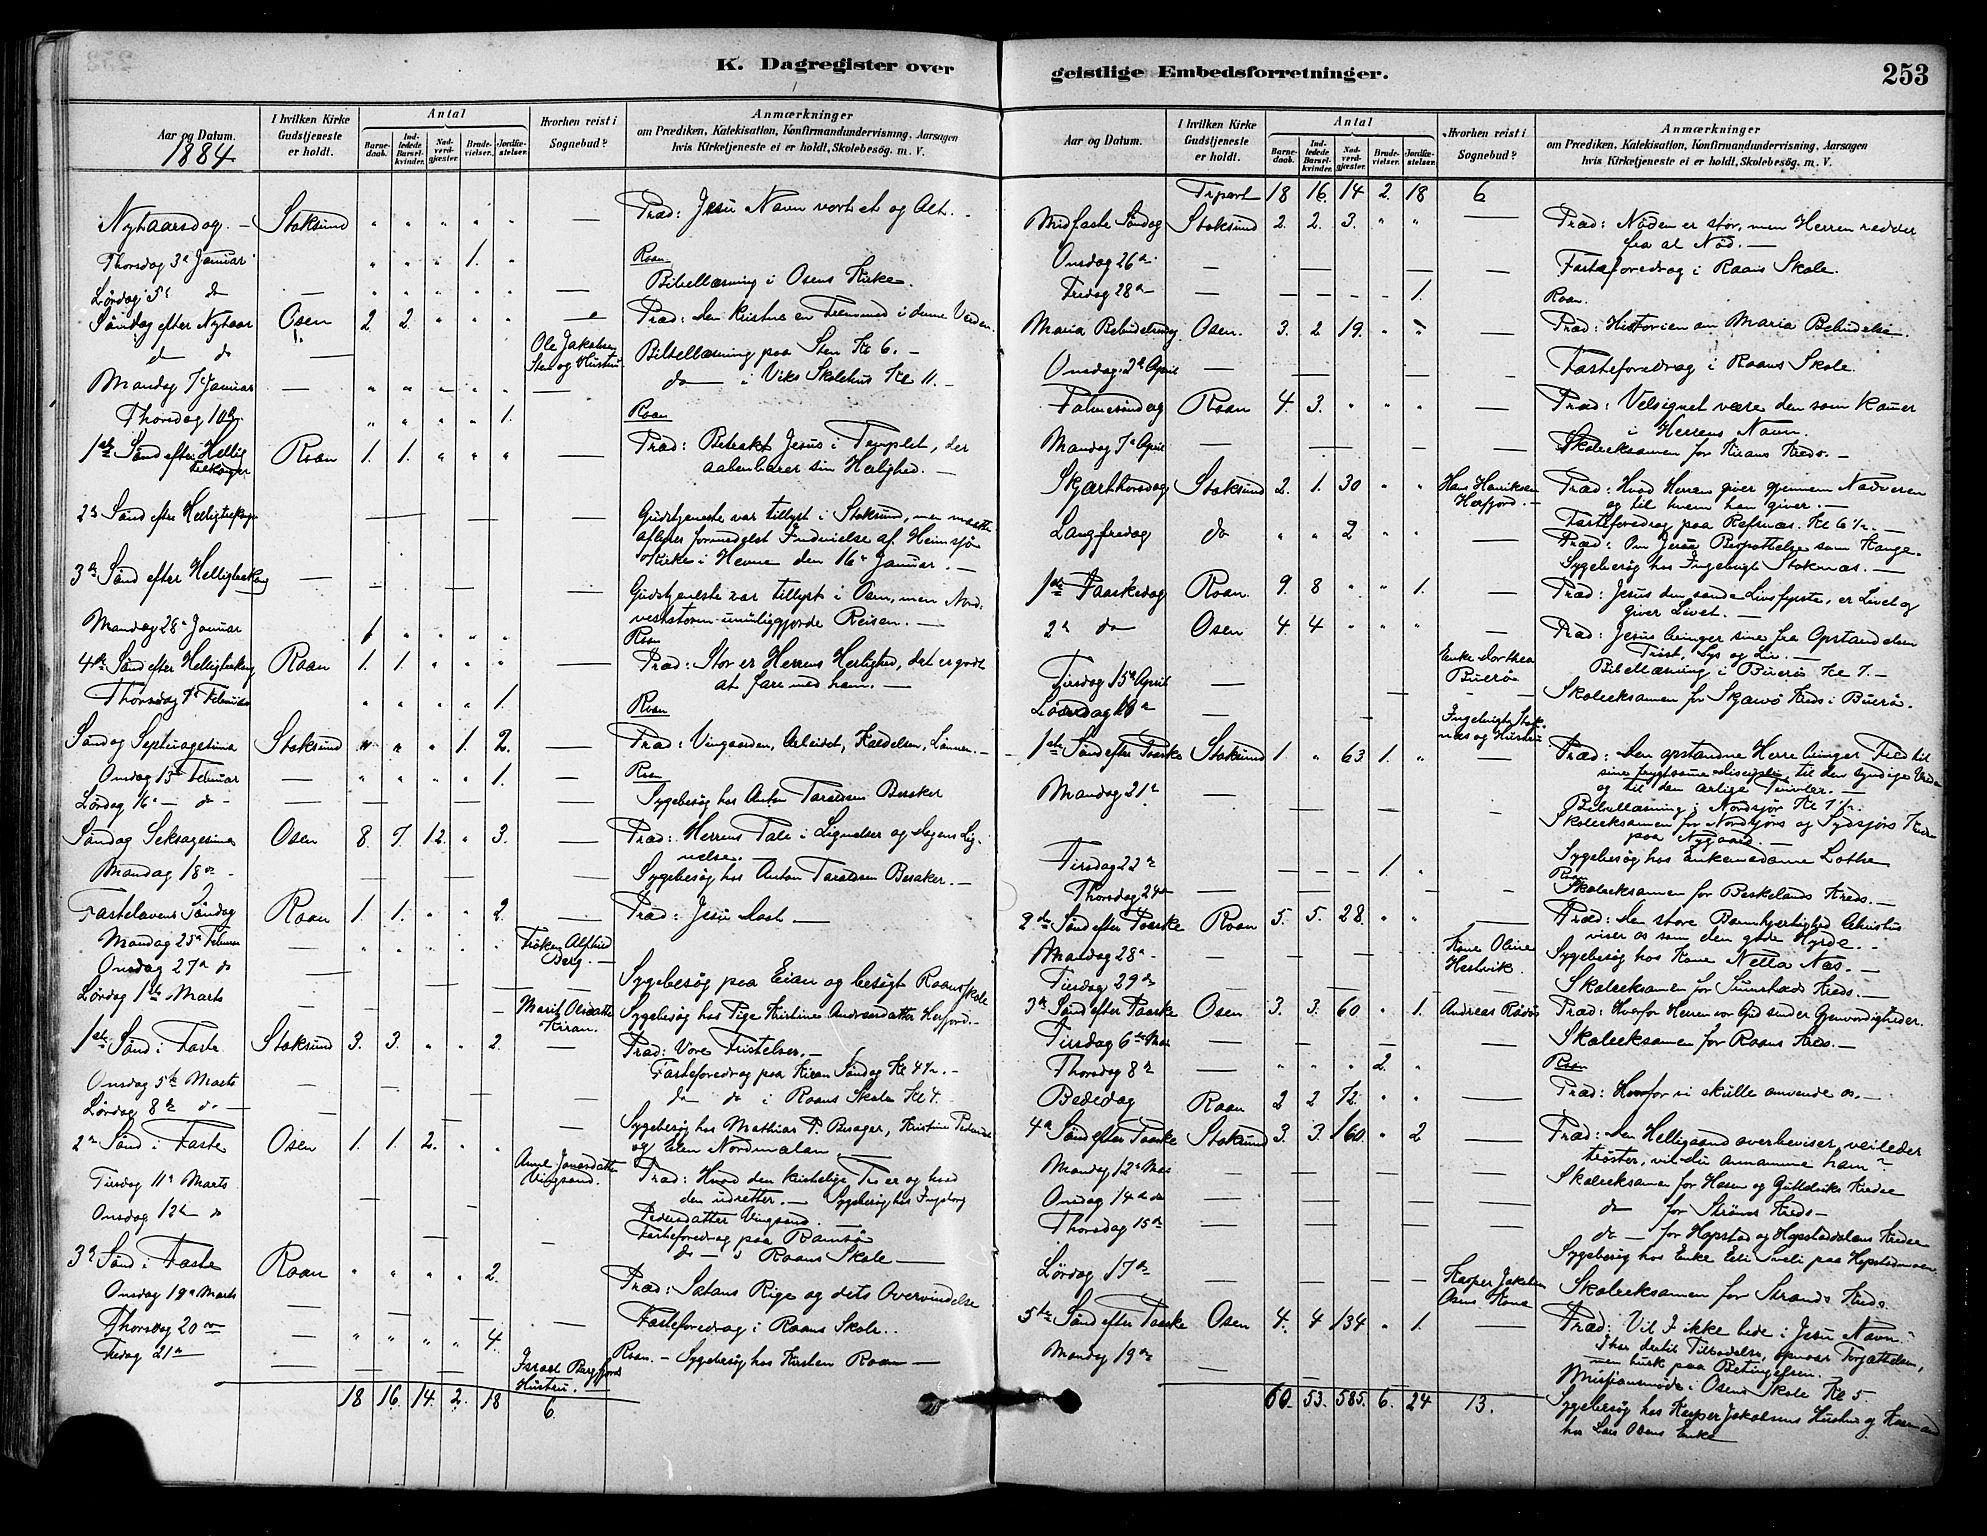 K. Dagregister over
Aar og Datum.
1884
I hvilken Kirke Gudstjeneste er holdt.
Antal
Barne-daab.
Ind-ledede Barsel-kvinder.
Nad-verd-gjæster.
Brude-vielser.
Jordfæ-stelser.
Hvorhen reist i Sognebud?
Anmærkninger
om Prædiken, Katekisation, Konfirmandundervisning, Aarsagen
hvis Kirketjeneste ei er holdt, Skolebesøg. m. V.
Nytaarsdag. - Stoksund " " " " " — Præd: Jesu Navn vort et og Alt. -
Thorsdag 3die Januar " " " 1. " Roan
Lørdag 5te do — " " " " " — Bibellæsning i Osens Kirke.
Søndag efter Nytaar Osen 2 2 " " " Præd: Den kristne en Fremmed i denne Verden.
do do — Ole Jakobsen Sten og Hustru Bibellæsning paa Sten Kl 6. -
Mandag 7de Januar — " " " " " — do — i Viks Skolehus Kl 11. -
Thorsdag 10de " " " " 1. Roan
1ste Sønd efter Hellig trekonger Roan 1. 1. " " " — Præd: Betrakt Jesus i Templet, der
aabenbarer sin Herlighed. —
2den Sønd efter Helligtrekgr — — Gudstjeneste var tillyst i Stoksund, men maatte
aflyses formedelst Indvielse af Heimsjø
Kirke i Hevne den 16de Januar. —
3die Sønd efter Helligtrekong — — Gudstjeneste var tillyst i Osen, men Nord-
veststorm umuliggjorde Reisen. —
Mandag 28de Januar 1 " " " " Roan
4de Sønd efter Helligtrekong Roan 1. 1. " " " — Præd: Stor er Herrens Herlighed, det er godt
at fare med ham. —
Thorsdag 7de Februar " " " " 1. Roan
Søndag Septuagesima Stoksund " " " 1. 2. — Præd: Vingaarden, Arbeidet, Kaldelsen, Lønnen. -
Onsdag 13de Februar — " " " " 1. — Roan
Lørdag 16de — do - Sygebesøg hos Anton Taraldsen Besaker
Søndag Seksagesima Osen 8 7. 12. " 3. — Præd: Herrens Tale i Lignelser og Dagens Lig-
nelse. —
Mandag 18de - — Sygebesøg hos Anton Taraldsen Besaker. —
Fastelavens Søndag Roan 1. 1. " " 2. — Præd: Jesu Daab —
Mandag 25de Februar — " " " " " Frøken Alfhild Berg. —
Onsdag 27de do — Sygebesøg paa Eian og besigt Roans Skole
Lørdag 1ste Marts — Marit Olsdatter Kiran. Sygebesøg hos Pige Kristine Andreasdatter Herfjord. -
1ste Sønd i Faste Stoksund 3. 3. " " 2. — Præd: Vore Fristelser. -
Fasteforedrag paa Kiran Søndag Kl 4½. -
Onsdag 5te Marts — do do i Roans Skole Kl 7. -
Lørdag 8de do - — Sygebesøg hos Mathias P. Besager, Kristine Pedersd.
og Elen Nordmelan
2den Sønd i Faste Osen 1. 1. 2. " " Anne Jonasdatter Vingsand. Præd: Hvad den kristelige Tro er og hvad
den udretter. — Sygebesøg hos Ingeborg
Tirsdag 11te Marts — Pedersdatter Vingsand. —
Onsdag 12te do Fasteforedrag paa Ramsø
do — i Roans Skole —
3die Sønd i Faste Roan " " " " 2. — Præd: Satans Rige og dets Overvindelse
Onsdag 19de Marts — Fasteforedrag i Roans Skole. -
Thorsdag 20de — " " " " 4. —
Fredag 21de — Israel Bergfjords Hustru. Roan. - Sygebesøg hos Kirsten Roan —
18 16. 14. 2. 18 6.
geistlige Embedsforretninger.
253
Aar og Datum.
I hvilken Kirke Gudstjeneste er holdt.
Antal
Barne-daab.
Ind-ledede Barsel-kvinder.
Nad-verd-gjæster.
Brude-vielser.
Jordfæ-stelser.
Hvorhen reist i Sognebud?
Anmærkninger
om Prædiken, Katekisation, Konfirmandundervisning, Aarsagen
hvis Kirketjeneste ei er holdt, Skolebesøg. m. V.
Trsport 18 16. 14 2. 18 6
Midfaste Søndag Stoksund 2. 2. 3. " " — Præd: Nøden er stor, men Herren redder
fra al Nød. —
Onsdag 26de — Fasteforedrag i Roans Skole.
Fredag 28de — 1. Roan.
Maria Bebudelsesdag Osen. 3. 2 19. " " — Præd: Historien om Maria Bebudelse.
Onsdag 2den April — Fasteforedrag i Roans Skole.
Palmesøndag Roan 4. 3. " " " — Præd: Velsignet være den som kommer
i Herrens Navn.
Mandag 7de April — Skoleeksamen for Kirans Kreds. -
Skjærthorsdag Stoksund 2. 1. 30 " " Hans Henriksen Herfjord. - Præd: Hvad Herren giver gjennem Nadveren
og til hvem han giver. -
Fasteforedrag paa Refsnæs. Kl 6½. —
Langfredag do " " 2 " " — Præd: Om Jesus Bespottelse som Konge.
Sygebesøg hos Ingebrigt Stoknæs. —
1ste Paaskedag Roan. 9. 8 " " 1. — Præd: Jesus den sande Livsfyrste, er Livet og
giver Livet. —
2den do Osen 4. 4 " " " — Præd: Jesus bringer sine fra Opstandelsen
Trøst, Lys og Liv. —
Tirsdag 15de April — Enke Dorthea Buerø Bibellæsning i Buerø Kl 7. —
Skoleeksamen for Skjærvø Kreds i Buerø.
1ste Sønd efter Paaske Stoksund 1. " 63 1. " Ingebrigt Stoknæs og Hustru Præd: Den opstandne Herre bringer Fred til
sine frygtsomme Disciple, til den syndige Verden
og til den ærlige Tvivler. —
Mandag 21de — Bibellæsning i Nordsjør Kl 7½. -
Skoleeksamen for Nordskjørs og Sydskjørs Kredse
paa Nygaard —
Tirsdag 22de — Sygebesøg hos Enkemadame Lothe
1 " Roan
Thorsdag 24de — Skoleeksamen for Beskelands Kreds. -
2den Sønd efter Paaske Roan 5. 5. 28. " " — Præd: Den store Barmhjertighed Christus
viser os som den gode Hyrde. -
Mandag 28de — Kone Oline Hestvik. Sygebesøg hos Kone Nella Næs. —
Tirsdag 29de — Skoleeksamen for Sumstads Kreds. —
3die Sønd efter Paaske Osen 3. 3. 60 " 1. Andreas Rødøs Præd: Hvorfor Herren vor Gud sender Gjenvordigheder.
Tirsdag 6te Mai — Skoleeksamen for Roans Kreds. —
Thorsdag 8de — " " " 2. " Roan
Bededag Roan 2 2 72. " " — Præd: Hvorfor vi skulle omvende os. -
4de Sønd efter Paaske Stoksund 3. 3. 160. " 2 — Præd: Den Helligaand overbeviser, veileder
trøster, vil du annamme ham?
Mandag 12te Mai — Skoleeksamen for Hosen og Guttelviks Kredse
Onsdag 14de do — do for Strøms Kreds -
Thorsdag 15de — do — for Hopstad og Hopstaddalens Kredse
Sygebesøg hos Enke Eli Sveli paa Hopstadmoen
Lørdag 17de — Kasper Jakobsen Osens Kone Skoleeksamen for Strands Kreds.
5te Sønd efter Paaske Osen 4. 4 134 " 1. — Præd: Vil I ikke bede i Jesu Navn?
I har dertil Tilladelse, Forjættelsen,
men husk paa Betingelsen.
Mandag 19de — Missionsmøde i Osens Skole Kl 5
Sygebesøg hos Kasper Jakobsens Hustru og
hos Lars Osens Enke
60. 53. 585. 6. 24 13.